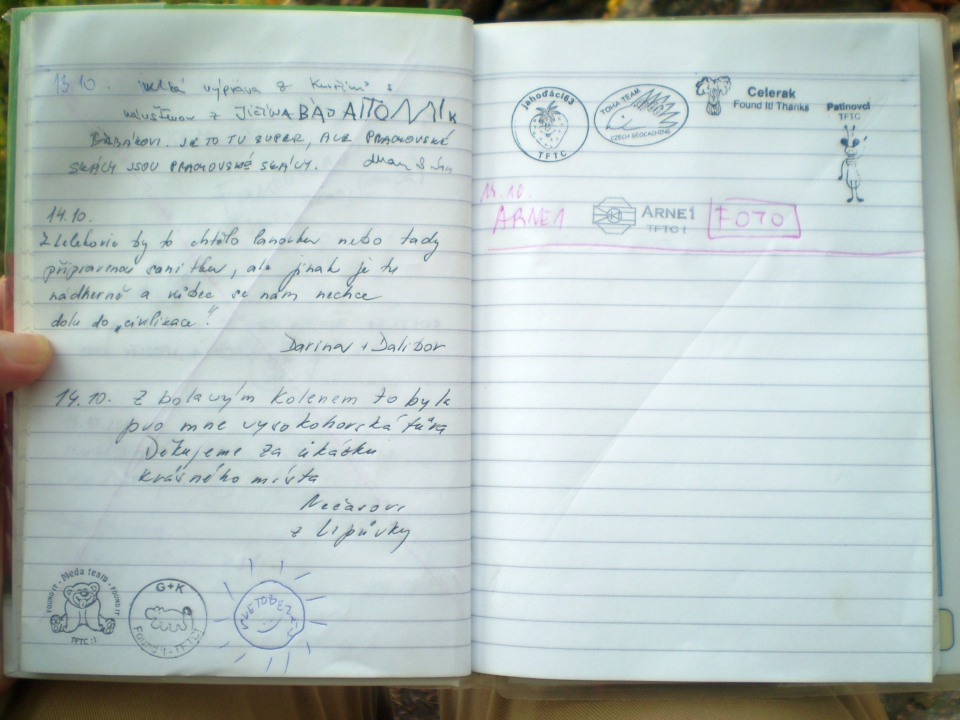 13.10. velká výprava z Kuřimi s
z JIČÍNA
JE TO TU SUPER, ALE PRACHOVSKÉ
SKÁLY JSOU PRACHOVSKÉ SKÁLY.
14.10.
by to chtělo lanovku nebo tady
připravenou sanitku, ale jinak je tu
nádherně a vůbec se nám nechce
dolů do „civilizace“.
Darina + Dalibor
14.10. Z bolavým kolenem to byla
pro mne vysokohorská túra
Děkujeme za ukázku
krásného místa
Nečasovi
z Lipůvky
FOUND IT - Meda team - FOUND IT
TFTC :)
G+K
Found it - TFTC!
jahoďáci63
TFTC
TOHA TEAM
CZECH GEOCACHING
Celerak
Found It! Thanks
Patinovci
TFTC
14.10.
ARNE1
ARNE1
TFTC!
FOTO